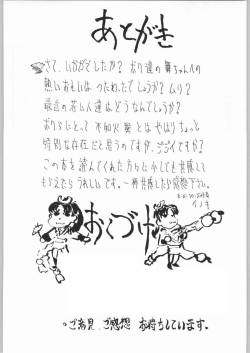 あとがき
さて、いかがでしたか？おり達の舞ちゃんへの
熱いおもいは つたわったでしょうか？ムリ？
最近の若い人達はどうなんでしょうか？
おりらにとって 不知火舞 とは やはりちょっと
特別な存在だと思うのですが、ジジイですか？
この本を読んでくれた方らに少しでも共感して
もらえたら うれしいです。一杯共感したら感想下さい。
おくづけ
ご意見、ご感想 お待ちしています。